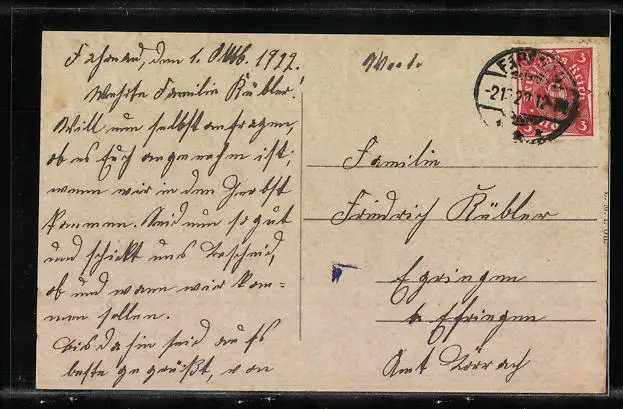 Fahrnau, den 1. Okt. 1922.
Werte Familie Kübler!
Will nun selbst anfragen,
ob es Euch angenehm ist,
wenn wir in den Herbst
kommen. Seid nun so gut
und schickt uns Bescheid,
ob und wann wir kom-
men sollen.
Bis dahin seid aufs
beste gegrüßt, von
Familie
Friedrich Kübler
Egringen
b Efringen
Amt Lörrach
3
3
3